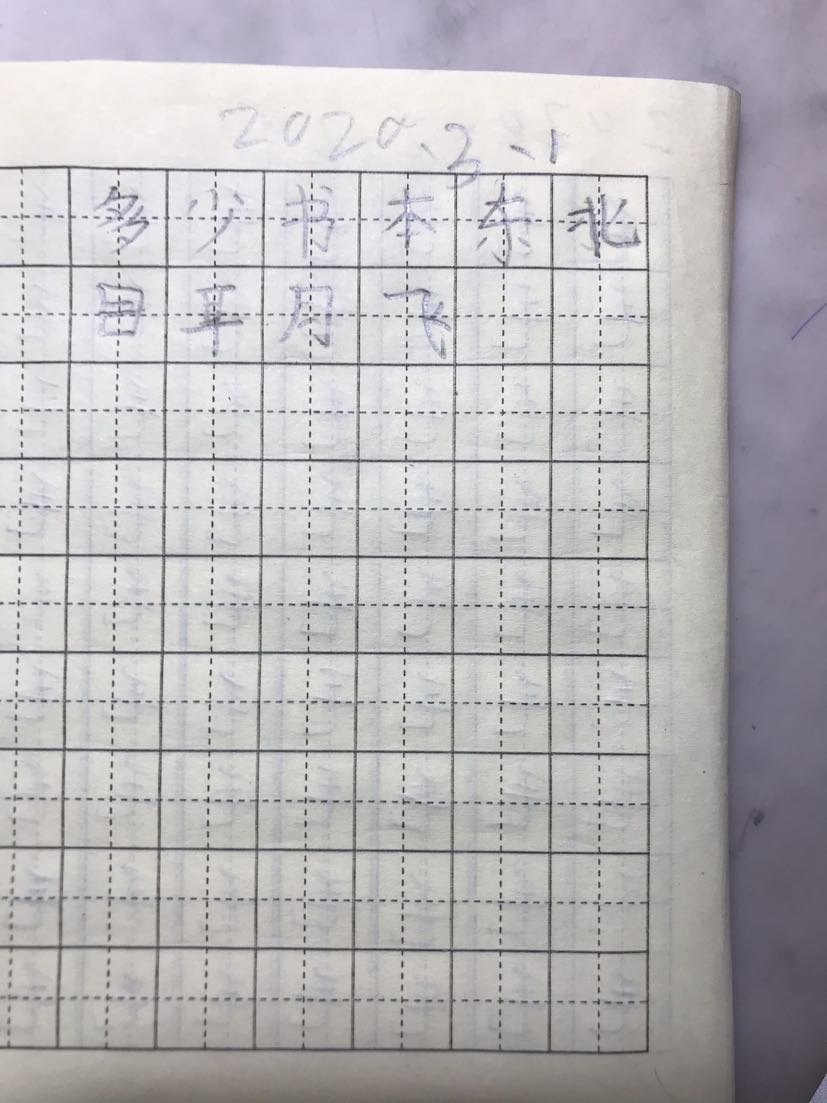 2020.3.1
多少书本东北
目耳月飞